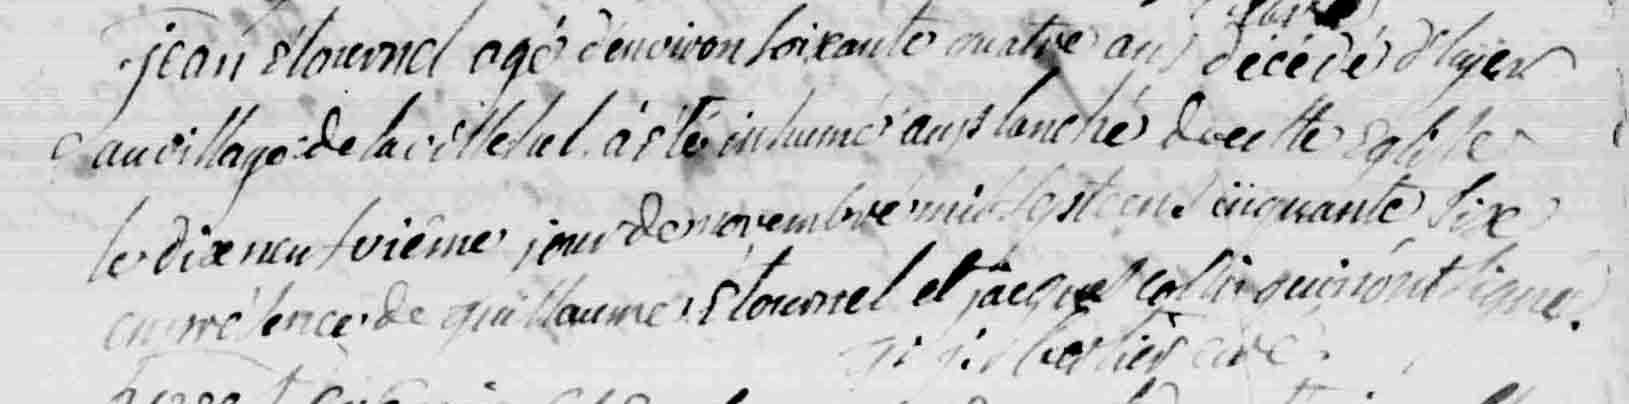 jean Etournel agé denviron soixante quatre ans décédé d'hyer
au village de la villehel. à été inhumé aux planché de cette Eglise
le dixneufviême jour de novembre mil sept cens cinquante six
en présence de guillaume Etournel et jacques collin qui n'ont signé.
curé.